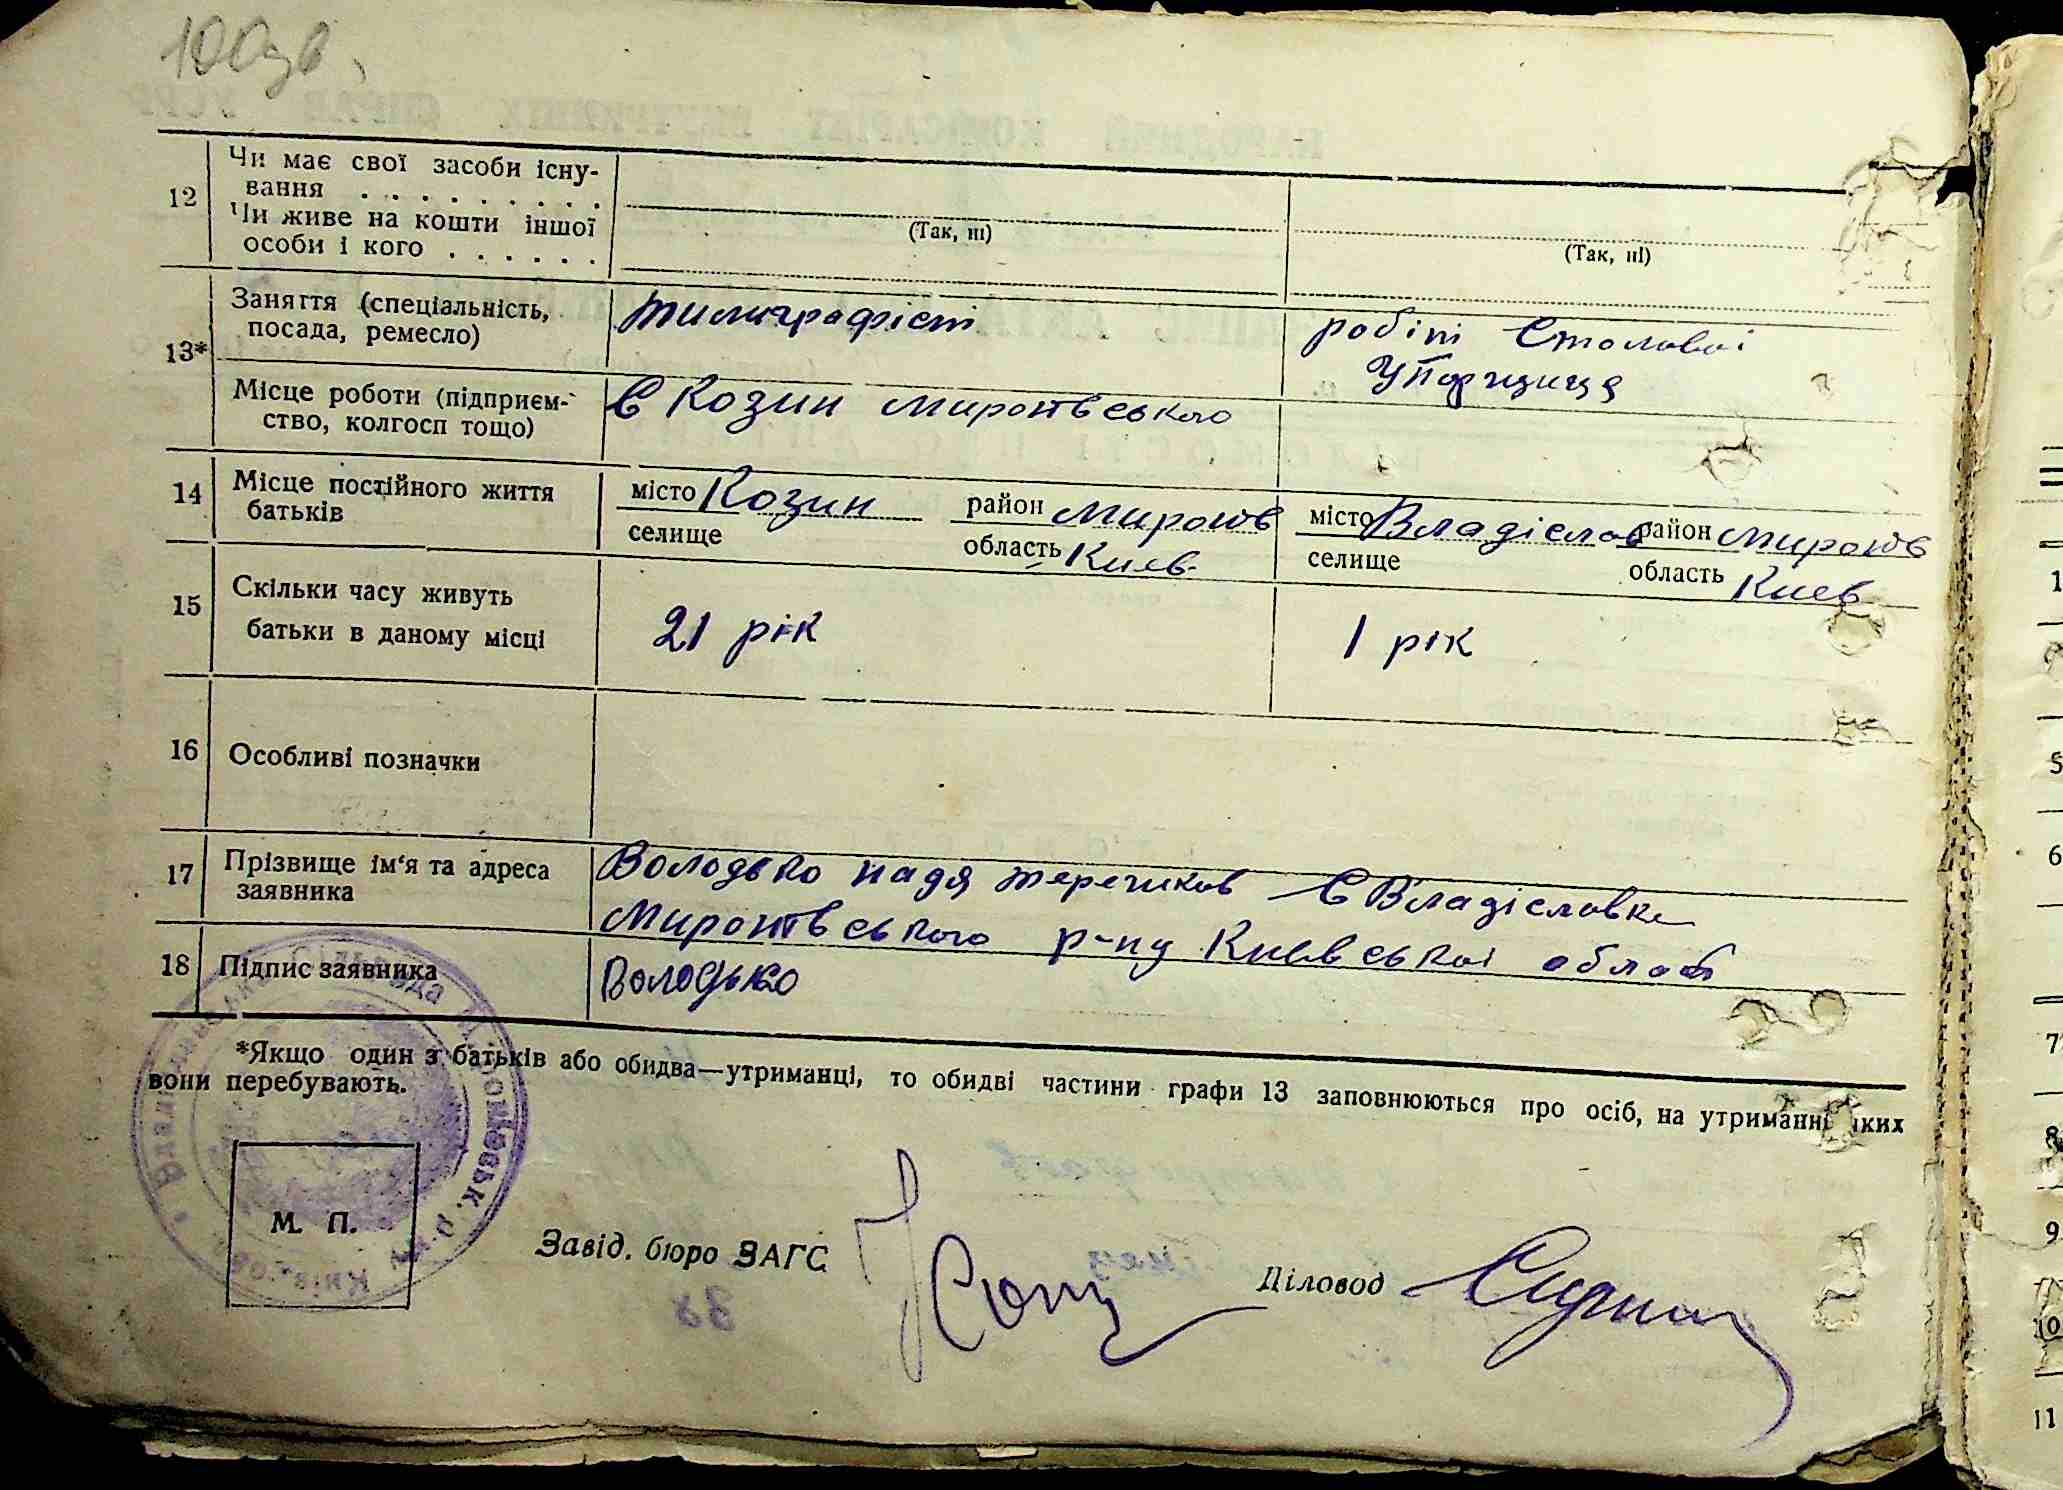 100зв.
12
Чи має свої засоби існу-
вання . . . . . . . . .
Чи живе на кошти іншої
особи і кого . . . . . .
(Так, ні)
(Так, ні)
13*
Заняття (спеціальність,
посада, ремесло)
тилиграфіст
робіт Столовоі
Місце роботи (підприєм-
ство, колгосп тощо)
С Козин Миронівського
14
Місце постійного життя
батьків
місто Козин район Миронів
селище область Киев
місто Владіслав район Миронів
селище область Киев
15
Скільки часу живуть
батьки в даному місці
21 рік
1 рік
16
Особливі позначки
17
Прізвище ім'я та адреса
заявника
Володько Надя С Владіславка
Миронівського р-ну Киевськоі област
18
Підпис заявника
Володько
*Якщо один з батьків або обидва—утриманці, то обидві частини графи 13 заповнюються про осіб, на утриманні яких
вони перебувають.
М. П.
Завід. бюро ЗАГС
Діловод
1
5
6
7
8
9
10
11